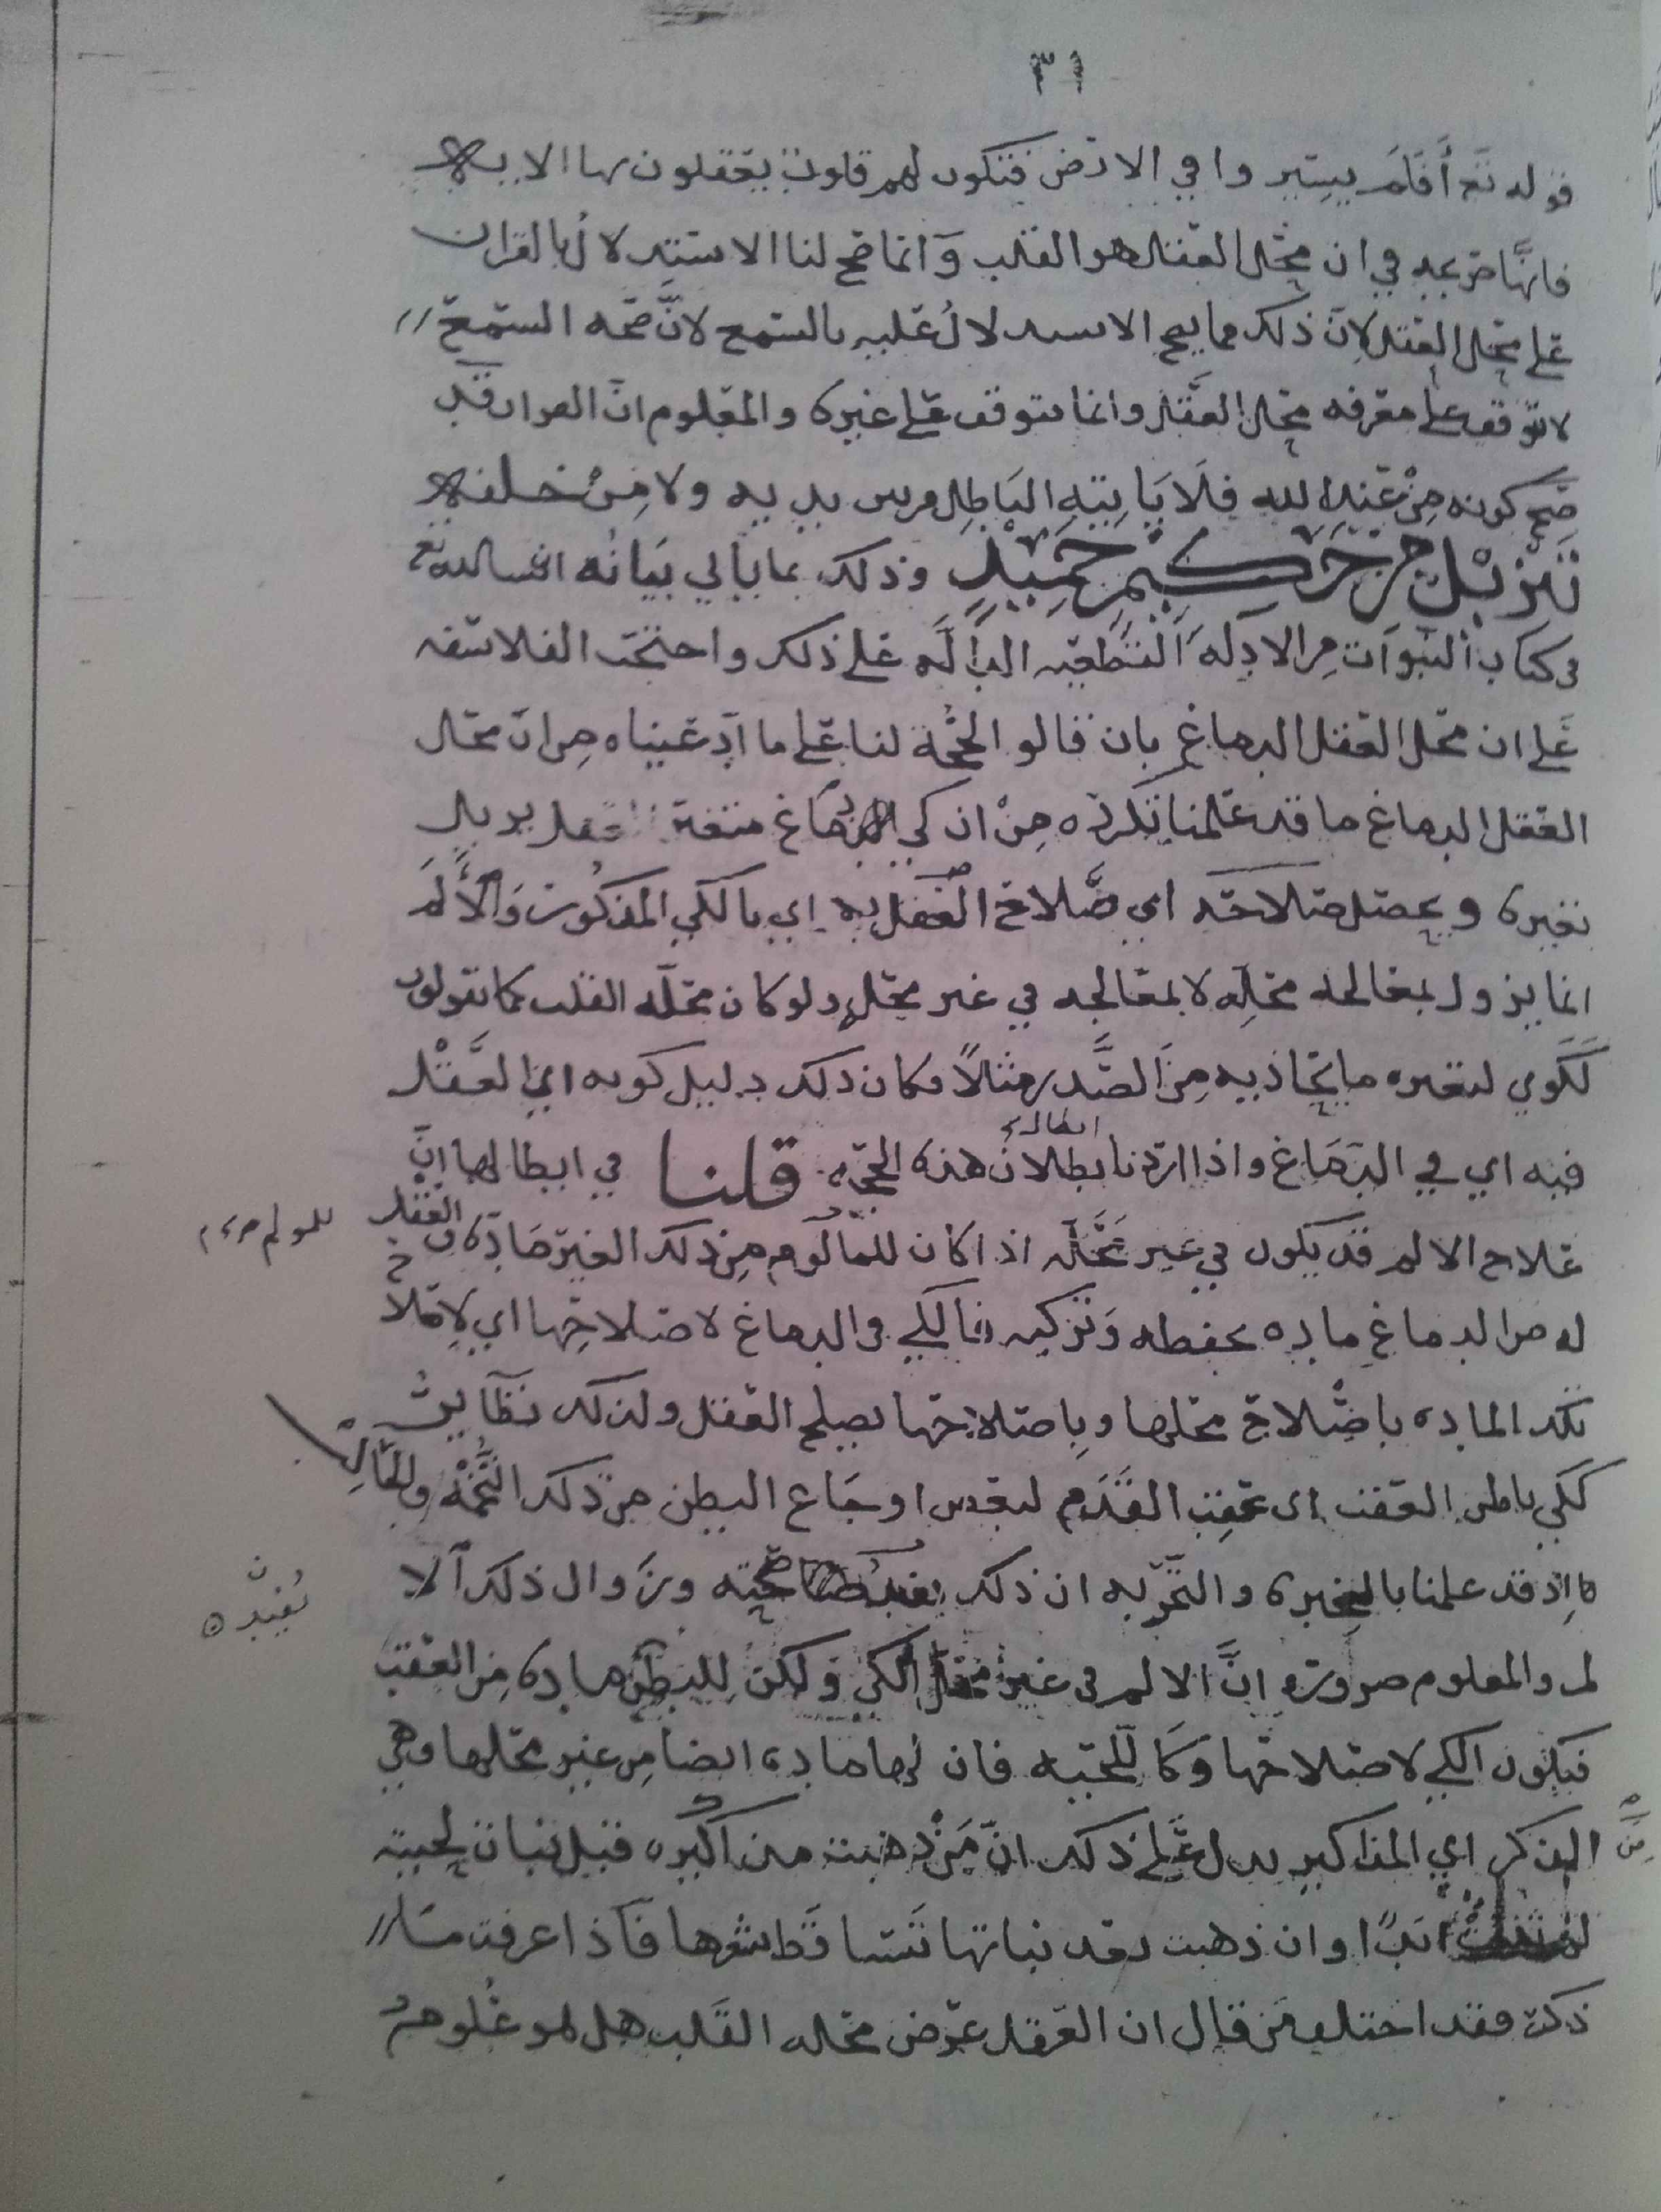 ٣١
قوله تع أَفَلَمْ يسيروا في الارض فتكون لهم قلوب يعقلون بها الايه
فانَّها صريحه في ان محل العقل هو القلب وَانما صح لنا الاستدلالُ بالقران
على محل العقل لانّ ذلك مما يصح الاستدلالُ عليه بالسمع لانَّ صحه السمع
لا توقف على معرفه محل العقل وانما يتوقف على غيره والمعلوم انّ القران قد
صَّح كونه مِنْ عند الله فلا يَاتيهِ البَاطِل من بين يديه ولا مِنْ خلفه
تنزيل من حَكيمٍ حَمِيْدٍ وذلك بما يأتي بيَانُه انشا الله تع
في كتاب النبوات مِن الادِله القَطعيه الدآلَّه على ذلك واحتجت الفلاسفه
عَلى ان محل العقل الدماغ بان قالو الحجَّة لنا على ما ادعيناه من انّ محل
العقل الدماغ ما قد علمنا نكرره مِنْ ان كي الدماغ متغير العقل يزيل
تغيره و يحصل صلاحه اي صَلاح العقل به اي بالكي المذكور وَالأَلَمُ
انما يزول بمعالجه محلِّه لا بمعالجه في غير محله ولو كان محلّه القلب كما تقولون
لَكُوي لتغيره ما يحاذيه مِنَ الصَّدر مثلاً فكان ذلك دليل كونه اي العَقل
فيه اي في الدِمَاغ واذا اردنا بطلانُ هذه الحجّه قلنا في ابطالها انّ
ابطال
علاج الالم قد يكون في غير مَحَلِّه اذا كان للمألوم مِن ذلك الغير مَادّه والعَقْل
له من الدماغ ماده تحفظه وَتزكيه فالكي في الدماغ لاصلاحِها اي لاصلاح
تلك الماده باصْلاح محلها وبِاصلاحها يصلح العقل ولذلك نظَايرُ
ككي باطن العقب اي عقِب القَدَم لبعض اوجَاع البطن من ذلك التُّخْمَه
اِذ قد علمنا بالخبره والتجربه ان ذلك صحته وزَوال ذلك الا
يُفيد
لم والمعلوم ضرورة انَّ الالم في غير محل الكي ولكن لِلبطن ماده مِن العقب
فيكون الكي لاصلاحها وَكَاللّحيه فان لها ماده ايضا مِن غير محلها وهي
مِنَ الذكر اي المذاكير يدل على ذلك انّ مَنْ ذهبت مذاكيره قبل نبات لحيته
لم تنبت ابدًا وان ذهبت بعد نباتها تَتساقَط شعرها فَاذا عرفت مَا
ذكر فقد اختلف مَن قال ان العقل عرض محله القَلب هل هو علوم